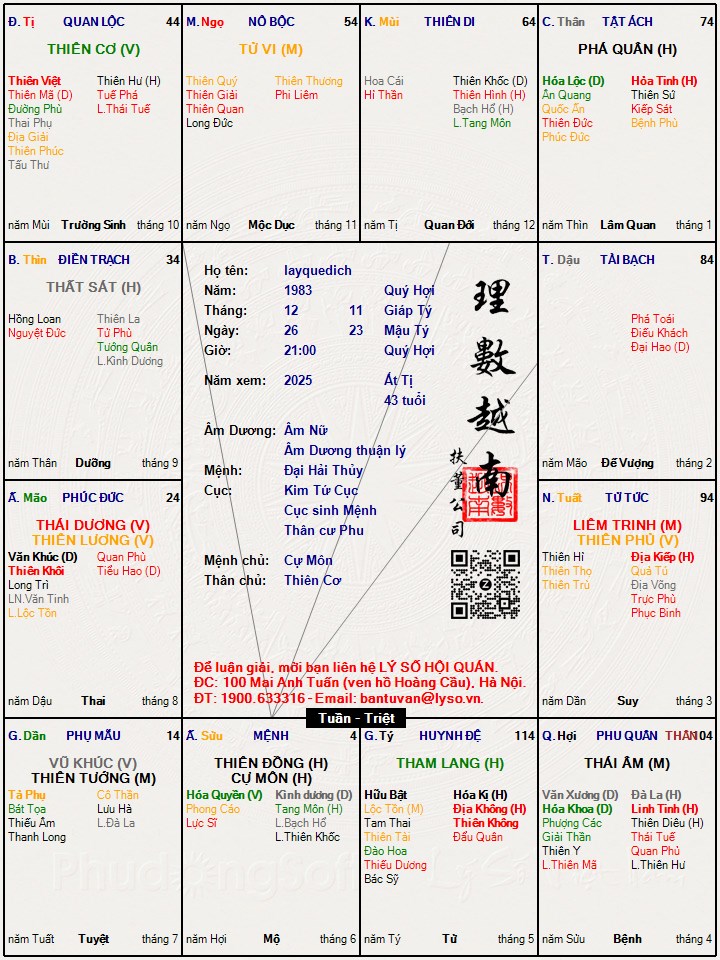 Đ. Tị QUAN LỘC 44
THIÊN CƠ (V)
Thiên Việt Thiên Hư (H)
Thiên Mã (D) Tuế Phá
Đường Phù L.Thái Tuế
Thai Phụ
Địa Giải
Thiên Phúc
Tấu Thư
năm Mùi Trường Sinh tháng 10
M. Ngọ NÔ BỘC 54
TỬ VI (M)
Thiên Quý Thiên Thương
Thiên Giải Phi Liêm
Thiên Quan
Long Đức
năm Ngọ Mộc Dục tháng 11
K. Mùi THIÊN DI 64
Hoa Cái Thiên Khốc (D)
Hỉ Thần Thiên Hình (H)
Bạch Hổ (H)
L.Tang Môn
năm Tị Quan Đới tháng 12
C. Thân TẬT ÁCH 74
PHÁ QUÂN (H)
Hóa Lộc (D) Hỏa Tinh (H)
Ân Quang Thiên Sứ
Quốc Ấn Kiếp Sát
Thiên Đức Bệnh Phù
Phúc Đức
năm Thìn Lâm Quan tháng 1
B. Thìn ĐIỀN TRẠCH 34
THẤT SÁT (H)
Hồng Loan Thiên La
Nguyệt Đức Tử Phù
Tướng Quân
L.Kình Dương
năm Thân Dưỡng tháng 9
Họ tên: layquedich
Năm: 1983 Quý Hợi
Tháng: 12 11 Giáp Tý
Ngày: 26 23 Mậu Tý
Giờ: 21:00 Quý Hợi
Năm xem: 2025 Ất Tị
43 tuổi
Âm Dương: Âm Nữ
Âm Dương thuận lý
Mệnh: Đại Hải Thủy
Cục: Kim Tứ Cục
Cục sinh Mệnh
Thân cư Phu
Mệnh chủ: Cự Môn
Thân chủ: Thiên Cơ
理數越南
扶董公司
Để luận giải, mời bạn liên hệ LÝ SỐ HỘI QUÁN.
ĐC: 100 Mai Anh Tuấn (ven hồ Hoàng Cầu), Hà Nội.
ĐT: 1900.633316 - Email: bantuvan@lyso.vn.
Tuần - Triệt
T. Dậu TÀI BẠCH 84
Phá Toái
Điếu Khách
Đại Hao (D)
năm Mão Đế Vượng tháng 2
Ấ. Mão PHÚC ĐỨC 24
THÁI DƯƠNG (V)
THIÊN LƯƠNG (V)
Văn Khúc (D) Quan Phù
Thiên Khôi Tiểu Hao (D)
Long Trì
LN.Văn Tinh
L.Lộc Tồn
năm Dậu Thai tháng 8
N. Tuất TỬ TỨC 94
LIÊM TRINH (M)
THIÊN PHỦ (V)
Thiên Hỉ Địa Kiếp (H)
Thiên Thọ Quả Tú
Thiên Trù Địa Võng
Trực Phù
Phục Binh
năm Dần Suy tháng 3
G. Dần PHỤ MẪU 14
VŨ KHÚC (V)
THIÊN TƯỚNG (M)
Tả Phụ Cô Thần
Bát Tọa Lưu Hà
Thiếu Âm L.Đà La
Thanh Long
năm Tuất Tuyệt tháng 7
Ấ. Sửu MỆNH 4
THIÊN ĐỒNG (H)
CỰ MÔN (H)
Hóa Quyền (V) Kình dương (D)
Phong Cáo Tang Môn (H)
Lực Sĩ L.Bạch Hổ
L.Thiên Khốc
năm Hợi Mộ tháng 6
G. Tý HUYNH ĐỆ 114
THAM LANG (H)
Hữu Bật Hóa Kị (H)
Lộc Tồn (M) Địa Không (H)
Tam Thai Thiên Không
Thiên Tài Đẩu Quân
Đào Hoa
Thiếu Dương
Bác Sỹ
năm Tý Tử tháng 5
Q. Hợi PHU QUÂN THÂN 104
THÁI ÂM (M)
Văn Xương (D) Đà La (H)
Hóa Khoa (D) Linh Tinh (H)
Phượng Các Thiên Diêu (H)
Giải Thần Thái Tuế
Thiên Y Quan Phủ
L.Thiên Mã L.Thiên Hư
năm Sửu Bệnh tháng 4